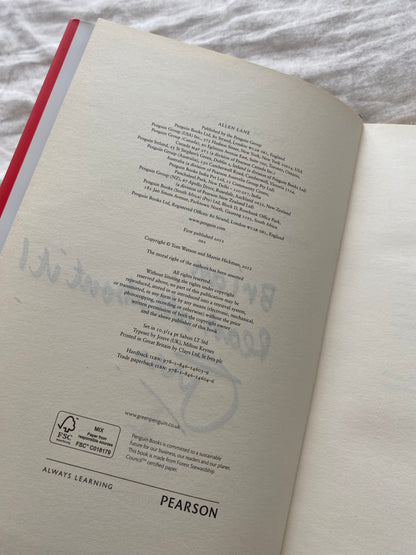 ALLEN LANE
Published by the Penguin Group
Penguin Books Ltd, 80 Strand, London WC2R 0RL, England
Penguin Group (USA) Inc., 375 Hudson Street, New York, New York 10014, USA
Penguin Group (Canada), 90 Eglinton Avenue East, Suite 700, Toronto, Ontario,
Canada M4P 2Y3 (a division of Pearson Penguin Canada Inc.)
Penguin Ireland, 25 St Stephen's Green, Dublin 2, Ireland (a division of Penguin Books Ltd)
Penguin Group (Australia), 250 Camberwell Road, Camberwell, Victoria 3124,
Australia (a division of Pearson Australia Group Pty Ltd)
Penguin Books India Pvt Ltd, 11 Community Centre,
Panchsheel Park, New Delhi – 110 017, India
Penguin Group (NZ), 67 Apollo Drive, Rosedale, Auckland 0632, New Zealand
(a division of Pearson New Zealand Ltd)
Penguin Books (South Africa) (Pty) Ltd, Block D, Rosebank Office Park,
181 Jan Smuts Avenue, Parktown North, Gauteng 2193, South Africa
Penguin Books Ltd, Registered Offices: 80 Strand, London WC2R 0RL, England
www.penguin.com
First published 2012
001
Copyright © Tom Watson and Martin Hickman, 2012
The moral right of the authors has been asserted
All rights reserved.
Without limiting the rights under copyright
reserved above, no part of this publication may be
reproduced, stored in or introduced into a retrieval system,
or transmitted, in any form or by any means (electronic, mechanical,
photocopying, recording or otherwise) without the prior
written permission of both the copyright owner
and the above publisher of this book
Set in 10.5/14 pt Sabon LT Std
Typeset by Jouve (UK), Milton Keynes
Printed in Great Britain by Clays Ltd, St Ives plc
Hardback ISBN: 978-1-846-14603-9
Trade paperback ISBN: 978-1-846-14604-6
www.greenpenguin.co.uk
FSC
www.fsc.org
MIX
Paper from
responsible sources
FSC® C018179
Penguin Books is committed to a sustainable
future for our business, our readers and our planet.
This book is made from Forest Stewardship
Council™ certified paper.
ALWAYS LEARNING
PEARSON